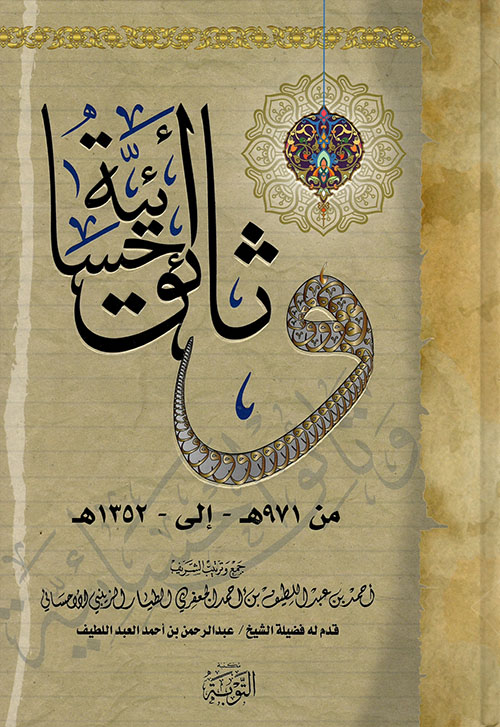 وثائق أحسائية
من ٩٧١هـ - إلى - ١٣٥٢هـ
جمع وترتيب الشريف
أحمد بن عبد اللطيف بن أحمد الجعفري الطيار الزينبي الأحسائي
قدم له فضيلة الشيخ / عبدالرحمن بن أحمد العبد اللطيف
مكتبة
التوبة